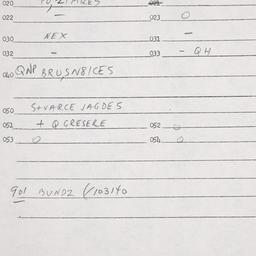 020
022 – 023 0
030 NEX 031 –
032 – 033 – QH
040 QNP BRU,SN8ICES
050 S+VARCE JAGDES
051 + QGRESERE 052 0
053 0 054 0
901 BUNDZ (/103140